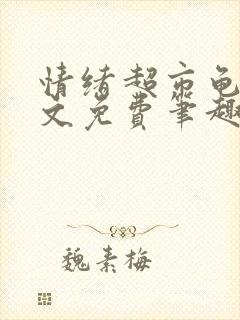 情绪超市龟
文免费笔趣
魏素梅